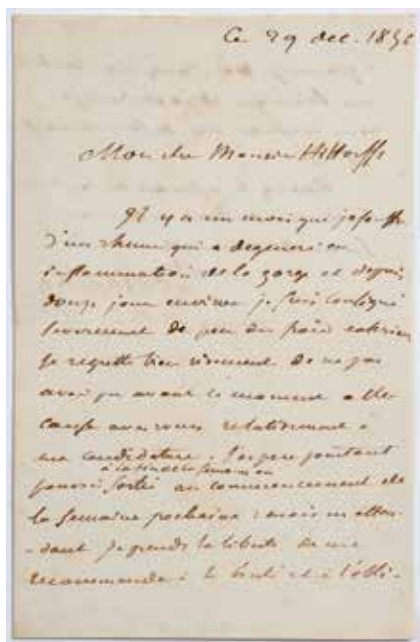 Ce 29 dec. 185
Mon cher Monsieur Hittorff
Il y a un mois que je souffre
d'un rhume qui a dégénéré en
inflammation de la gorge et depuis
douze jours environ je suis consigné
sévèrement de peur du froid exterieur
je regrette bien vivement de ne pas
avoir pu avant ce moment aller
causer avec vous relativement à
ma candidature. J'espere pourtant
à la fin de la semaine ou
pouvoir sortir au commencement de
la semaine prochaine : mais en atten-
-dant je prends la liberté de me
recommander à la bonté et à l'obli-